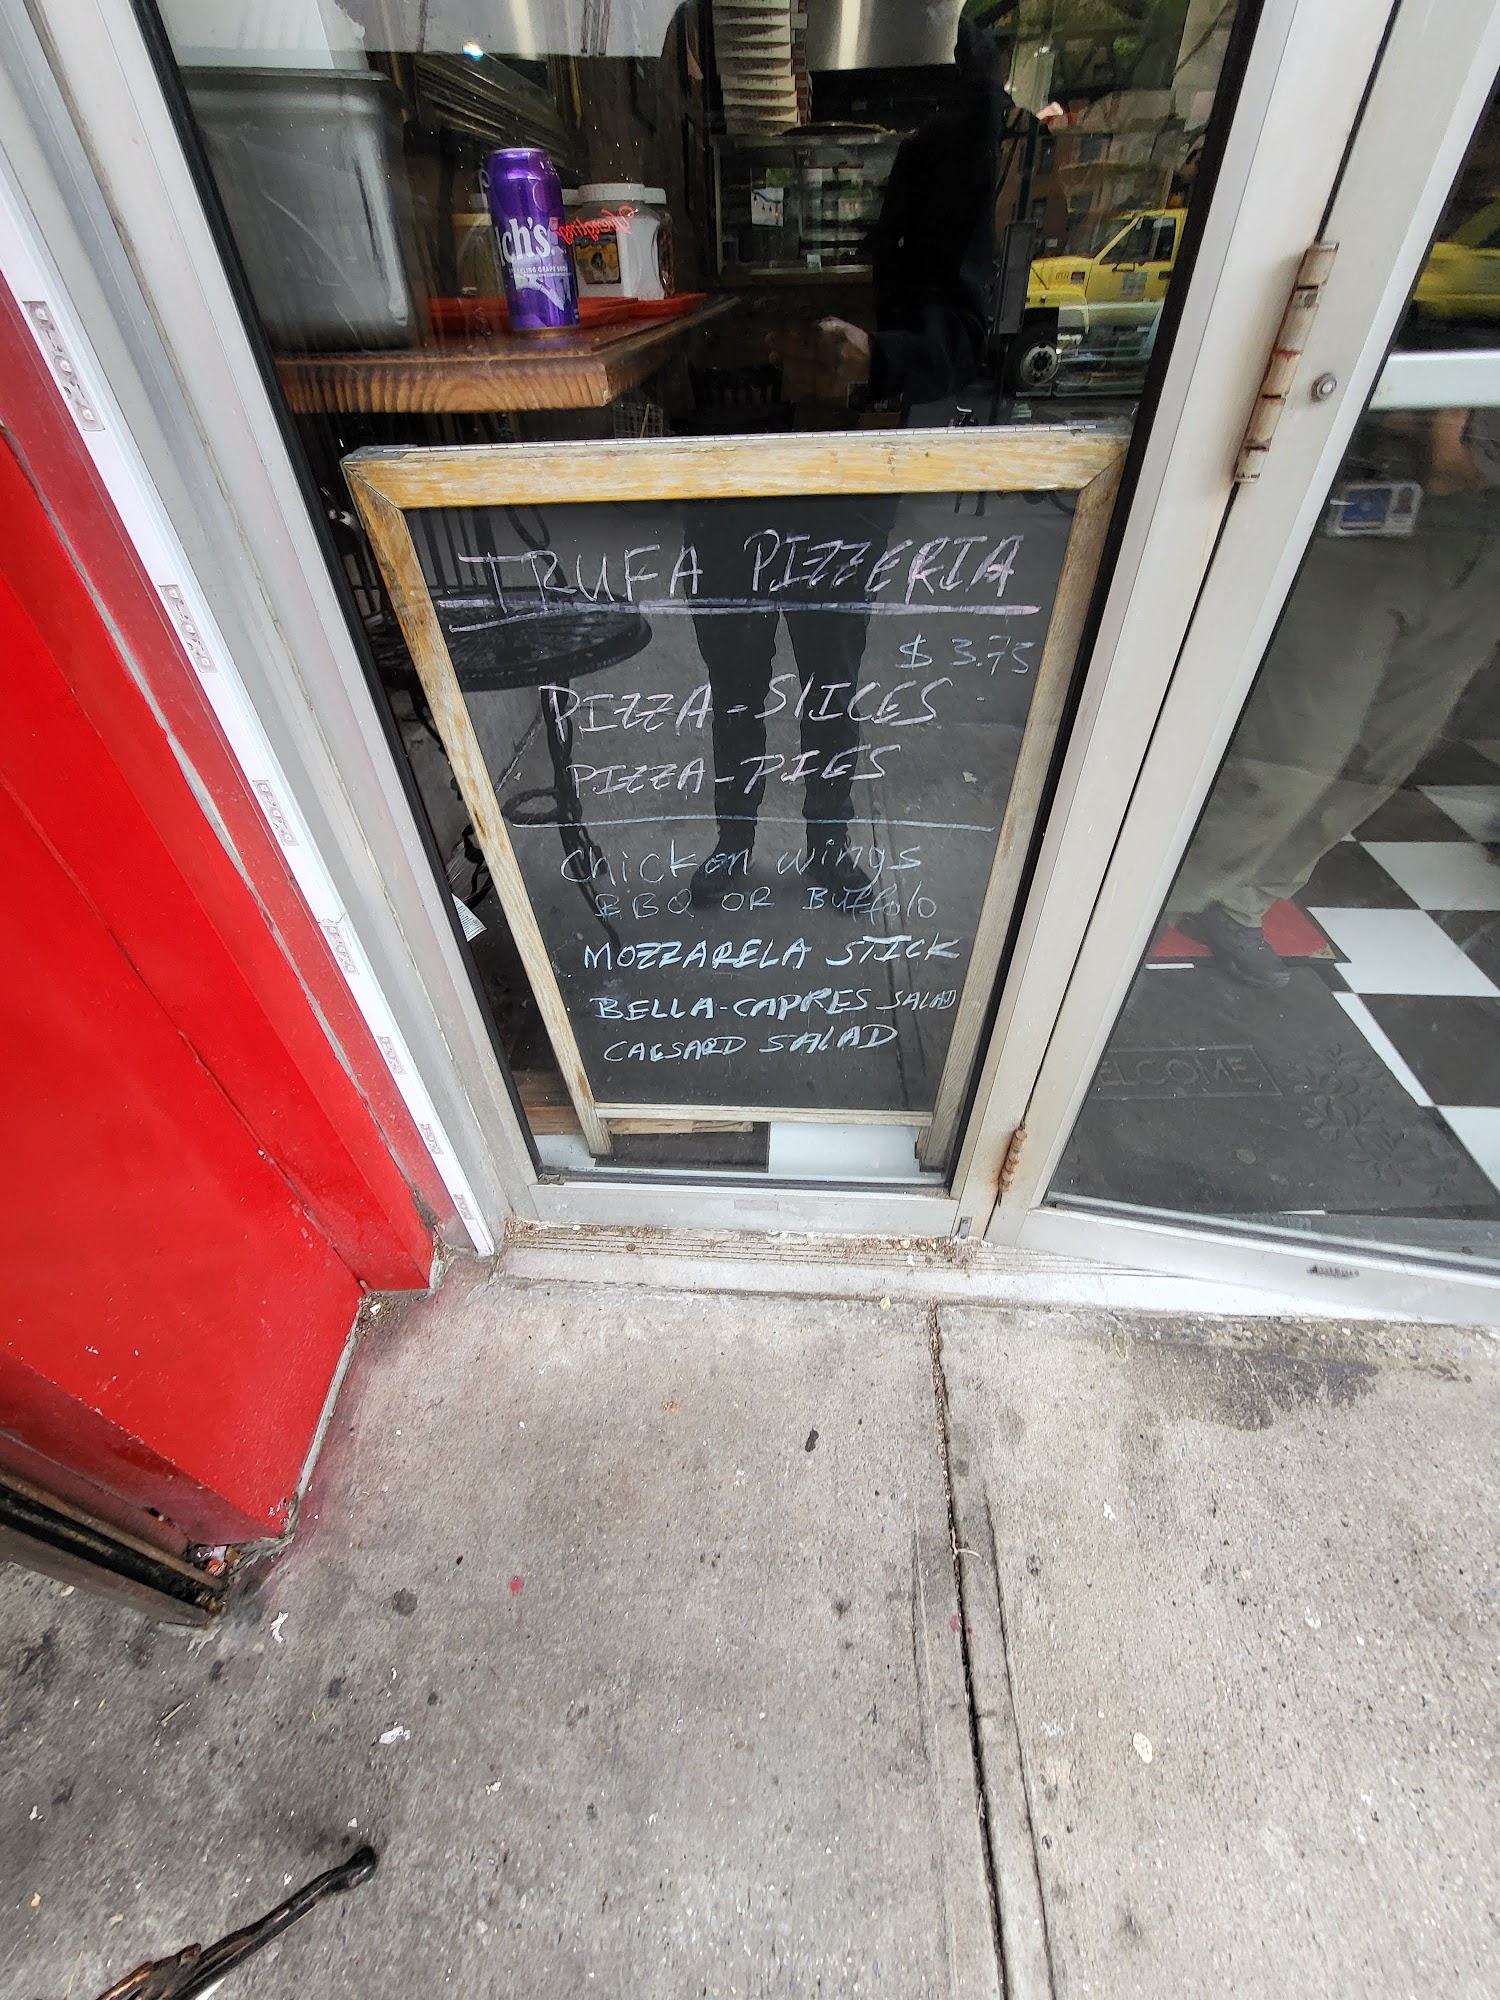 ch's
SPARKLING GRAPE SODA
TRUFA PIZZERIA
$3.75
PIZZA-SLICES
PIZZA-PIES
Chicken wings
BBQ OR Buffolo
MOZZARELA STICK
BELLA-CAPRES SALAD
CAESARD SALAD
ELCOME